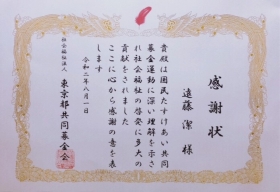 感謝状
遠藤 潔 様
貴殿は国民たすけあい共同
募金運動に深い理解を示さ
れ社会福祉の啓発に多大の
貢献をされました
ここに心から感謝の意を表
します
令和二年八月一日
社会福祉法人
東京都共同募金会